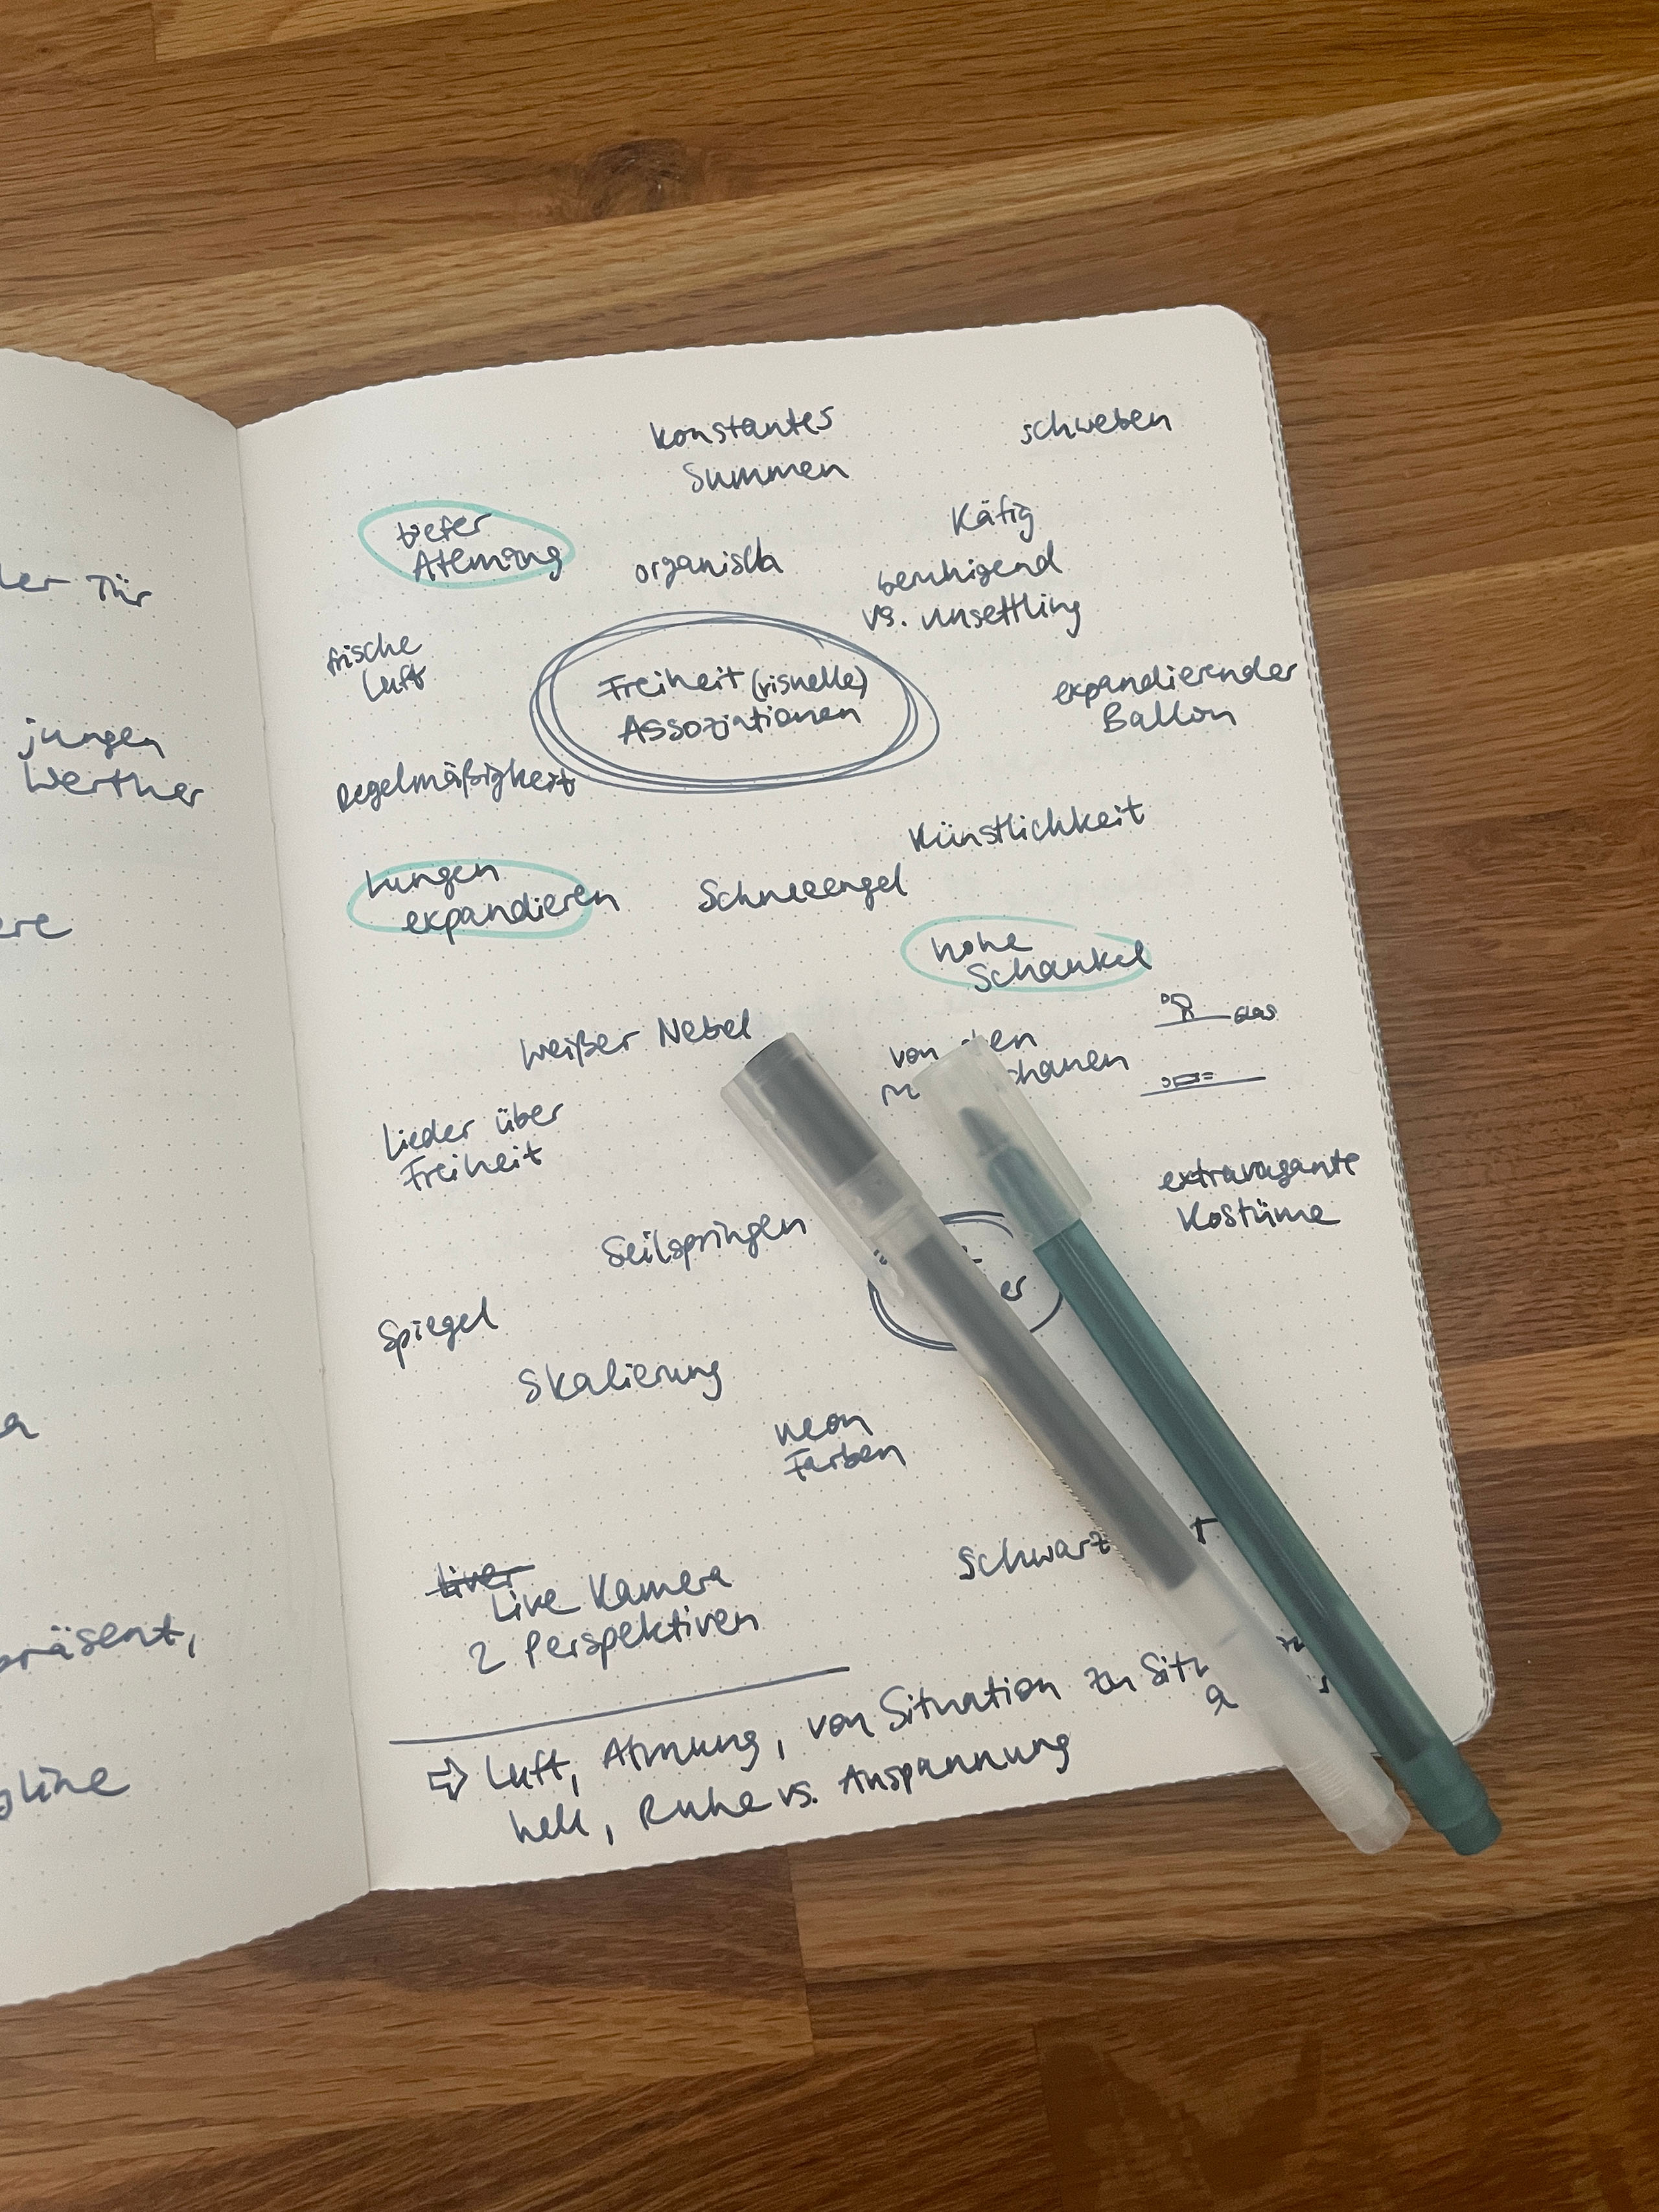 Tür
jungen
Werther
präsent,
konstantes
Summen
schweben
tiefer
Atemzug
organisch
Käfig
beruhigend
vs. unsettling
frische
Luft
Freiheit (visuelle)
Assoziationen
expandierender
Ballon
Regelmäßigkeit
Künstlichkeit
Lungen
expandieren
Schneeengel
hohe
Schaukel
weißer Nebel
von
Glas
Lieder über
Freiheit
extravagante
Kostüme
Seilspringen
Spiegel
Skalierung
neon
Farben
Schwarz
Liver
Live Kamera
2 Perspektiven
⇨ Luft, Atmung, von Situation zu
hell, Ruhe vs. Anspannung